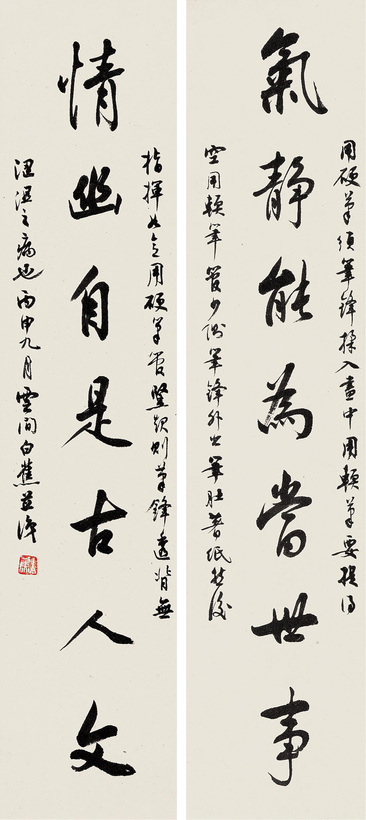 用硬筆須筆鋒揉入畫中用軟筆要提得
氣靜能為當世事
空用軟筆管少側筆鋒外出筆肚著紙然後
指揮如意用硬筆管豎起則筆鋒透背無
情幽自是古人文
澀滯之病也丙申九月雲間白蕉並識